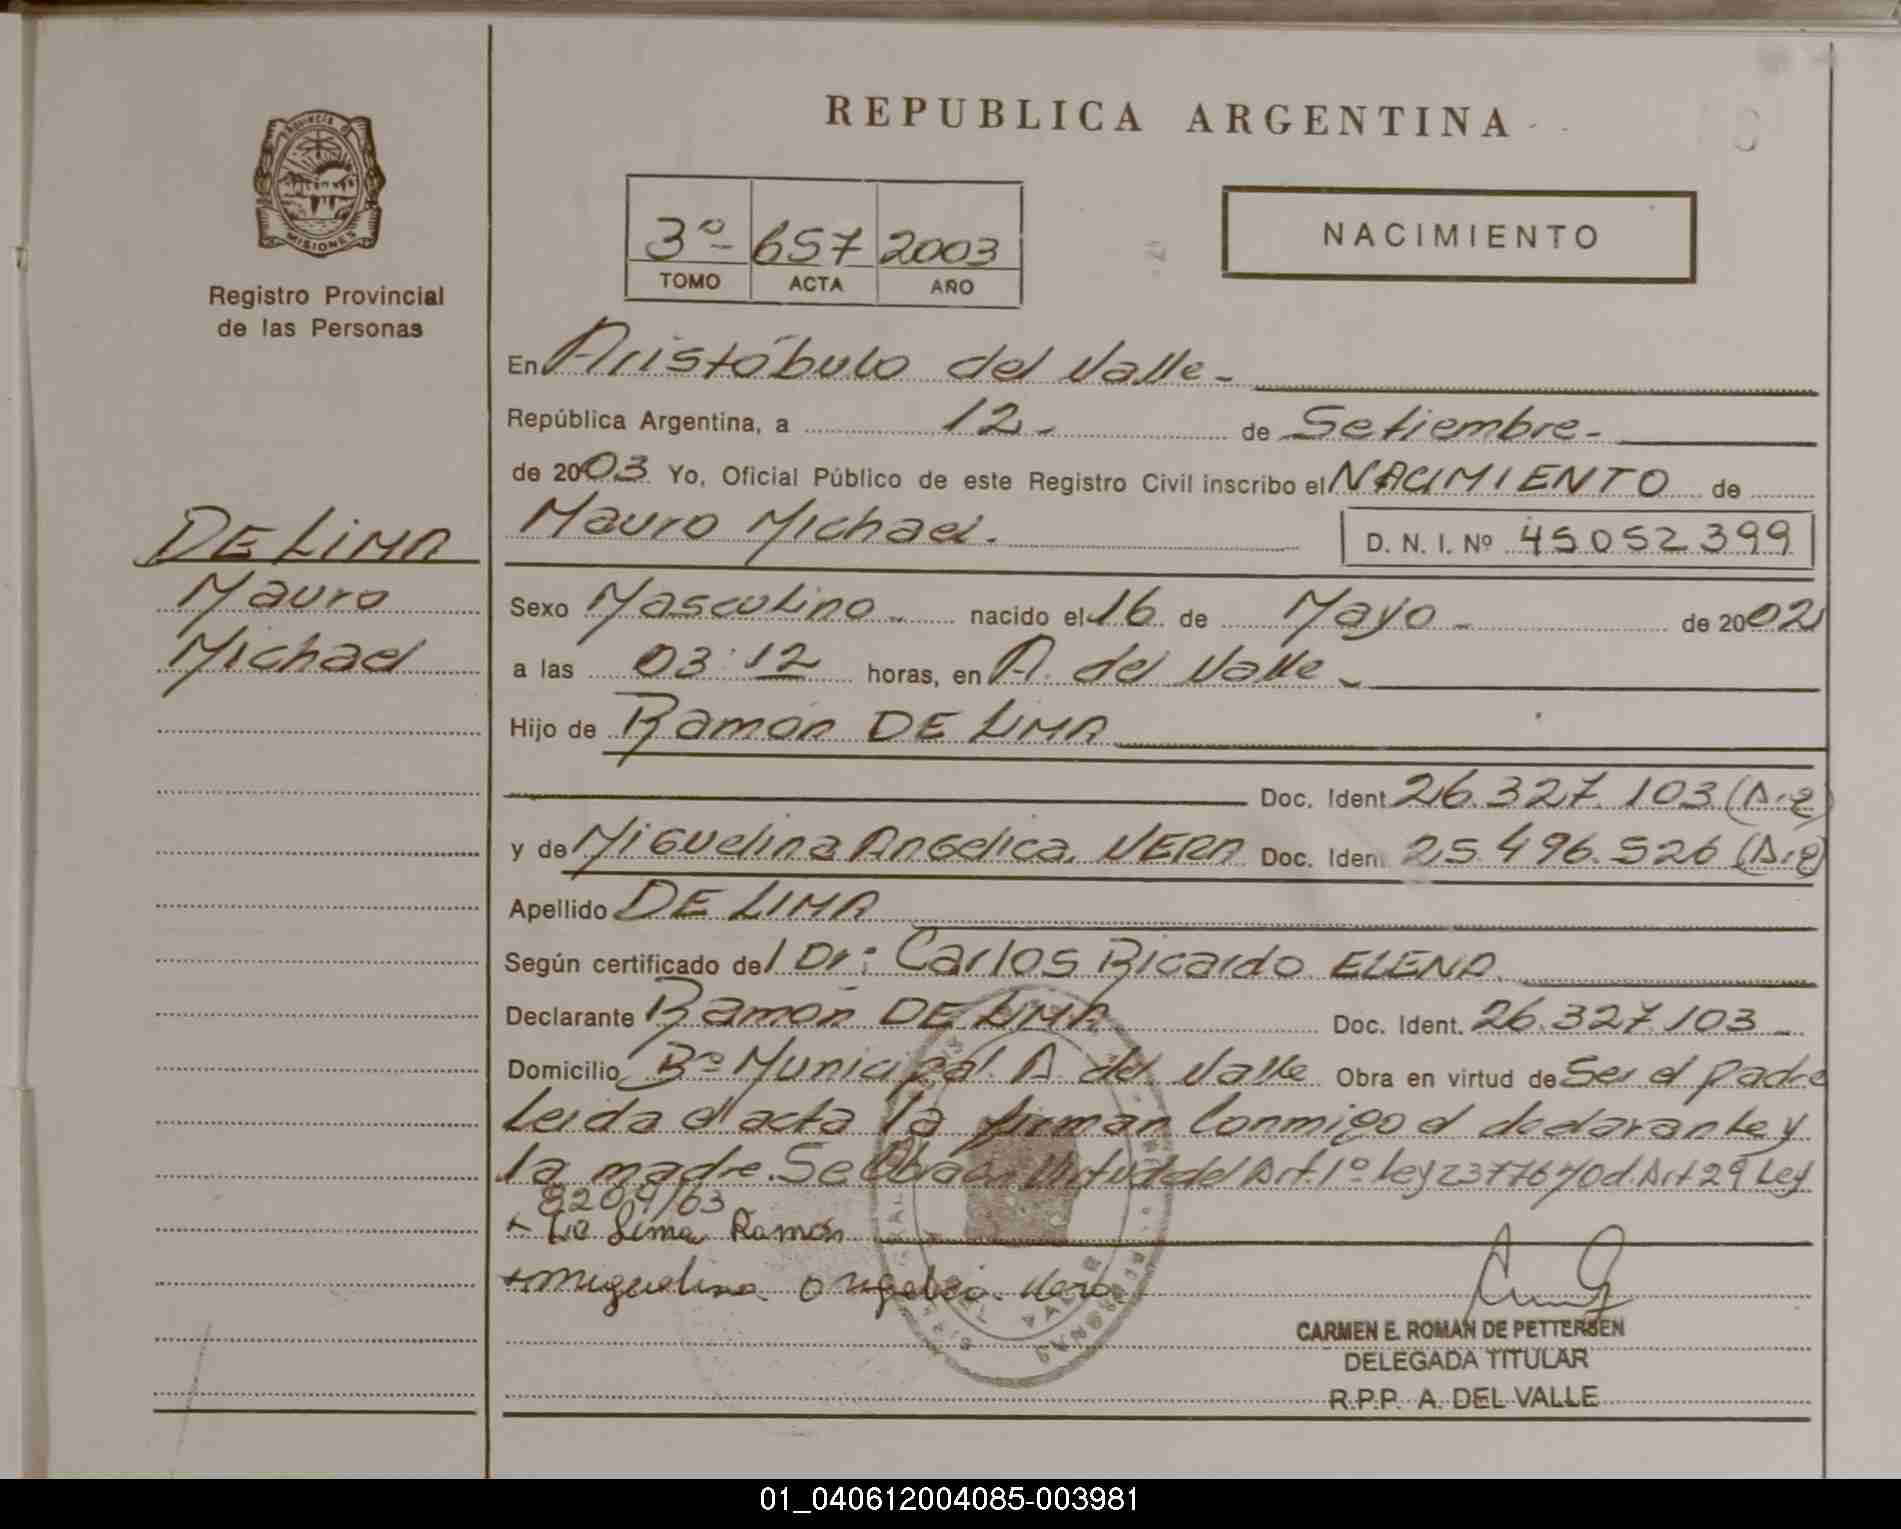 PROVINCIA D
MISIONES
Registro Provincial
de las Personas
DE LIMA
Mauro
Michael
REPUBLICA ARGENTINA
3º 657 2003
TOMO ACTA AÑO
NACIMIENTO
En Aristóbulo del Valle.-
República Argentina, a 12.- de Setiembre.-
de 2003. Yo, Oficial Público de este Registro Civil inscribo el NACIMIENTO de
Mauro Michael. D. N. I. Nº 45052399
Sexo Masculino.- nacido el 16 de Mayo.- de 2002
a las 03:12 horas, en A. del Valle.-
Hijo de Ramón DE LIMA
Doc. Ident. 26.327.103 (Arg)
y de Miguelina Angélica, VERA Doc. Ident. 25.496.526 (Arg)
Apellido DE LIMA
Según certificado del Dr: Carlos Ricardo ELENA
Declarante Ramón DE LIMA Doc. Ident. 26.327.103.-
Domicilio Bº Municipal A. del Valle Obra en virtud de Ser el padre
Leída el acta la firman Conmigo el declarante y
la madre. Se Obra en Virtud del Art. 1º Ley 23776/90 d. Art 29 Ley
8204/63
De Lima Ramón
Miguelina Angelica Vera
CARMEN E. ROMAN DE PETTERSEN
DELEGADA TITULAR
R.P.P. A. DEL VALLE
01_040612004085-003981